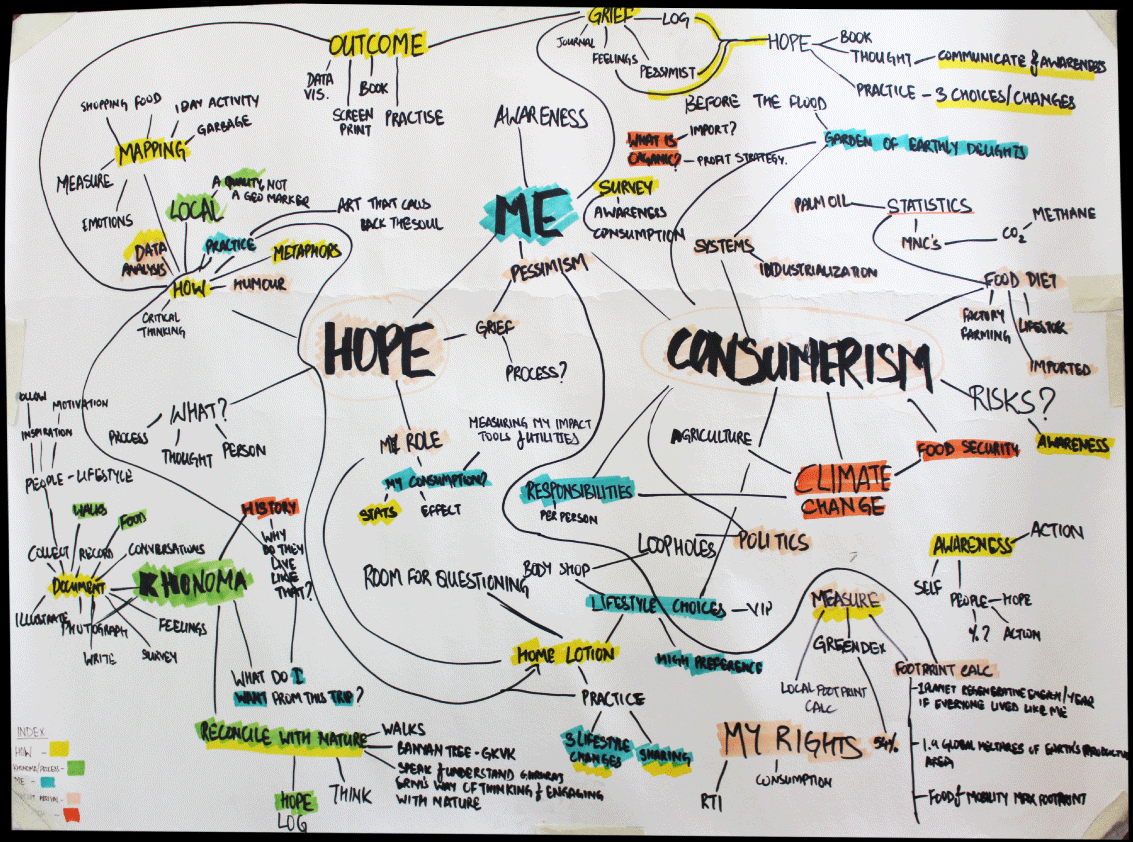 OUTCOME
DATA
VIS.
SCREEN
PRINT
BOOK
PRACTISE
GRIEF
LOG
JOURNAL
FEELINGS
PESSIMIST
HOPE
BOOK
THOUGHT
COMMUNICATE & AWARENESS
PRACTICE - 3 CHOICES/CHANGES
SHOPPING FOOD
1 DAY ACTIVITY
GARBAGE
MAPPING
MEASURE
EMOTIONS
AWARENESS
BEFORE THE FLOOD
WHAT IS
ORGANIC?
IMPORT?
PROFIT STRATEGY.
GARDEN OF EARTHLY DELIGHTS
LOCAL
A QUALITY, NOT
A GEO MARKER
ART THAT CALLS
BACK THE SOUL
ME
SURVEY
AWARENESS
CONSUMPTION
PALM OIL
STATISTICS
MNC'S
CO2
METHANE
DATA
ANALYSIS
PRACTICE
METAPHORS
HOW
HUMOUR
CRITICAL
THINKING
PESSIMISM
SYSTEMS
INDUSTRIALIZATION
FOOD DIET
FACTORY
FARMING
IMPORTED
HOPE
GRIEF
PROCESS?
CONSUMERISM
RISKS?
AWARENESS
MOTIVATION
INSPIRATION
PEOPLE - LIFESTYLE
WHAT?
PROCESS
THOUGHT
PERSON
MY ROLE
MEASURING MY IMPACT
TOOLS & UTILITIES
MY CONSUMPTION?
STATS
EFFECT
AGRICULTURE
FOOD SECURITY
CLIMATE
CHANGE
RESPONSIBILITIES
PER PERSON
WALKS
FOOD
HISTORY
WHY
DO THEY
LIVE
LIKE
THAT?
COLLECT
RECORD
CONVERSATIONS
DOCUMENT
KHONOMA
ILLUSTRATE
PHOTOGRAPH
FEELINGS
WRITE
SURVEY
LOOPHOLES
POLITICS
ROOM FOR QUESTIONING
BODY SHOP
LIFESTYLE CHOICES - VIP
HIGH PREFERENCE
AWARENESS
ACTION
SELF
PEOPLE - HOPE
Y.?
ACTION
MEASURE
GREENDEX
54%
LOCAL FOOTPRINT
CALC
FOOTPRINT CALC
- 1 PLANET REGENERATIVE ENERGY/YEAR
IF EVERYONE LIVED LIKE ME
- 1.9 GLOBAL HECTARES OF EARTH'S PRODUCTIVE
AREA
- FOOD & MOBILITY MAX FOOTPRINT
HOME LOTION
PRACTICE
3 LIFESTYLE
CHANGES
SHARING
WHAT DO I
WANT FROM THIS TRIP?
RECONCILE WITH NATURE
WALKS
BANYAN TREE - GKVK
SPEAK & UNDERSTAND
WAY OF THINKING & ENGAGING
WITH NATURE
HOPE
LOG
THINK
MY RIGHTS
RTI
CONSUMPTION
INDEX
HOW -
KHONOMA/PROCESS -
ME -